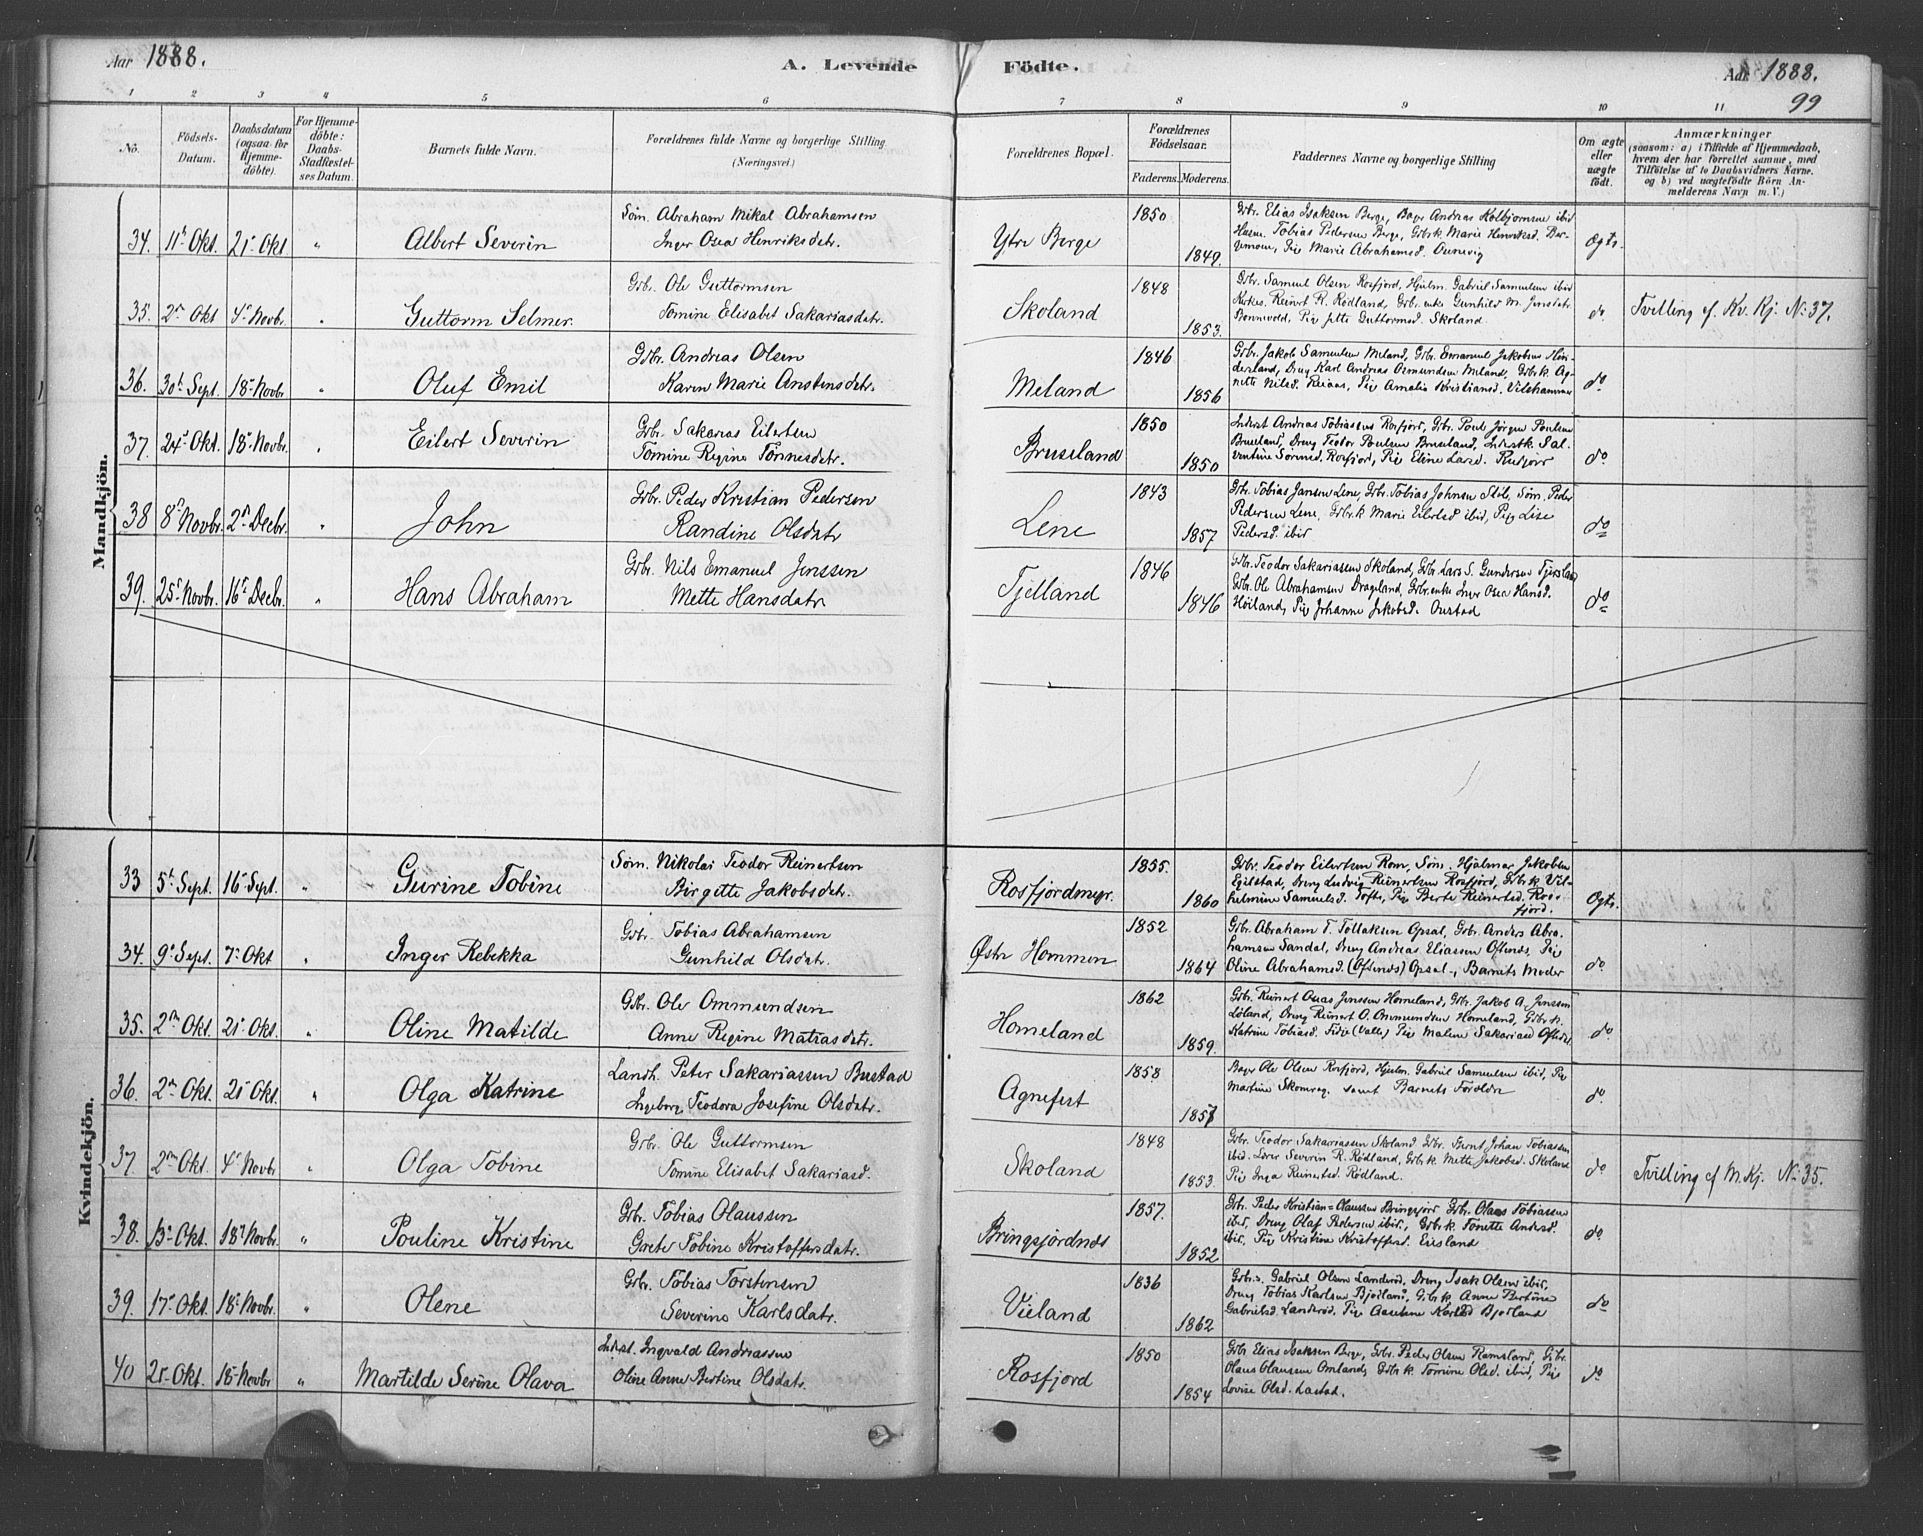 Aar 1888.
A. Levende
Födte.
Aar 1888.
99
1 2 3 4 5 6 7 8 9 10 11
No.
Födsels-Datum.
Daabsdatum (ogsaa for Hjemmedöbte).
For Hjemmedöbte: Daabs-Stadfæstelses Datum.
Barnets fulde Navn.
Forældrenes fulde Navne og borgerlige Stilling (Næringsvei.)
Forældrenes Bopæl.
Forældrenes Födselsaar.
Faderens. Moderens.
Faddernes Navne og borgerlige Stilling
Om ægte eller uægte födt.
Anmærkninger
(saasom: a) i Tilfælde af Hjemmedaab, hvem der har forrettet samme, med Tilföielse af to Daabsvidners Navne. og b) ved uægtefödte Börn Anmelderens Navn m. V.)
Mandkjön.
34. 11t Okt. 21 Okt " Albert Severin
Søm. Abraham Mikal Abrahamsen
Inger Osea Henriksdatr.
Ytre Berge 1850 1849.
Gbr. Elias Isaksen Berge, Andreas Kolbjørnsen ibid
Tobias Pedersen Berge, Gbrk Marie Henriksd.
Pig Marie Abrahamsd.
Ogte.
35. 2n Okt 4 Novbr. " Guttorm Selmer.
Gbr. Ole Guttormsen
Tomine Elisabet Sakariasdatr.
Skoland 1848 1853.
Gbr. Samuel Olsen Rosfjord, Hjulm. Gabriel Samuelsen ibid
Reinert R. Rødland, Gbr. enke Gunhild M. Jensdatr.
Pig Jette Guttormsd. Skoland.
do. Tvilling cf. Kv. Kj. N: 37.
36. 30t Sept. 18 Novbr " Oluf Emil
Gbr. Andreas Olsen
Karen Marie Anstensdatr.
Meland 1846 1856
Gbr. Jakob Samuelsen Meland, Gbr. Emanuel Jakobsen
Dreng Karl Andreas Osmundsen Meland, Gbrk
Nilsd. Pig Amalia Kristiansd. Vilshammer
do
37. 24 Okt. 18 Novbr. " Eilert Severin
Gbr. Sakarias Eilertsen
Tomine Regine Tønnesdatr.
Bruseland 1850 1850
Inderst Andreas Tobiassen Rosfjord, Gbr. Poul Jørgen Poulsen
Bruseland, Dreng Teodor Poulsen Bruseland, Inderstk.
Rosfjord, Pig Eline Larsd.
do.
38 8 Novbr. 2n Decbr. " John
Gbr. Peder Kristian Pedersen
Randine Olsdatr
Lene 1843 1857
Gbr. Tobias Jansen Lene, Gbr. Tobias Johnsen Søm. Peder
Pedersen Lene, Gbrk Marie Eilertsd ibid, Pig Lise
Pedersd. ibid
do
39. 25 Novbr. 16 Decbr. " Hans Abraham
Gbr. Nils Emanuel Jenssen
Mette Hansdatr
Tjelland 1846 1846
Gbr. Teodor Sakariassen Skoland, Gbr Lars S. Gundersen
Gbr. Ole Abrahamsen Drageland, Gbr. enke Inger Osea Hansd.
Høiland, Pig Johanne Jakobsd.
do
Kvindekjön.
33 5t Sept. 16 Sept. " Gurine Tobine
Søm. Nikolai Teodor Reinertsen
Birgitte Jakobsdatr.
Rosfjordmyr. 1855. 1860
Gbr. Teodor Eilertsen Rom, Søm. Hjalmar Jakobsen
Egilstad, Dreng Ludvig Reinertsen Rosfjord, Gbrk Vil-
helmine Samuelsd. Pig Berte Reinertsd. Ros-
fjord.
Ogte.
34. 9 Sept. 7 Okt " Inger Rebekka
Gbr. Tobias Abrahamsen
Gunhild Olsdatr.
Østr Hommen 1852 1864
Gbr. Abraham T. Tollaksen Opsal, Gbr. Anders Abra-
hamsen Sandal, Dreng Andreas Eliassen Ofsends, Pig
Oline Abrahamsd. (Ofsends) Opsal., Barnets Moder
do.
35. 2n Okt. 21 Okt. " Oline Matilde
Gbr. Ole Ommundsen
Anne Regine Matiasdatr.
Homeland 1862 1859.
Gbr. Reinert Jenssen Homeland, Gbr. Jakob A. Jenssen
Dreng Reinert O. Ommundsen Homeland, Gbrk.
Katrine Tobiasd. (Valle) Pig Malene Sakariasd
do.
36. 2n Okt. 21 Okt. " Olga Katrine
Landh. Peter Sakariassen Bustad
Ingeborg Teodora Josefine Olsdatr.
Agnefest 1858 1857
Ole Olsen Rosfjord, Hjulm. Gabriel Samuelsen ibid, Pig
Martine samt Barnets Foreldre
do.
37. 2n Okt. 4 Novbr " Olga Tobine
Gbr. Ole Guttormsen
Tomine Elisabet Sakariasd.
Skoland 1848 1853.
Gbr. Teodor Sakariassen Skoland Gbr. Bernt Johan Tobiassen
ibid. Severin R. Rødland, Gbrk. Mette Jakobsd. Skoland
Pig Inga Reinertsd. Rødland.
do Tvilling cf M. Kj. N: 35.
38. 13 Okt. 18 Novbr. " Pouline Kristine
Gbr. Tobias Olaussen
Grete Tobine Kristoffersdatr.
Bringsjordnes 1857. 1852
Gbr. Peder Kristian Olaussen Bringsjord Gbr. Olaus Tobiassen
ibid, Dreng Olaf Pedersen ibid, Gbrk. Tonette Andersd.
ibid. Pig Kristine Kristoffersd. Eirsland
do.
39. 17 Okt. 18 Novbr. " Olene
Gbr. Tobias Torstensen
Severine Karlsdatr.
Vieland 1836 1862
Gbr. Gabriel Olsen Landerød. Dreng Isak Olsen ibid,
Dreng Tobias Karlsen Gbrk Anne Bertine
Gabrielsd. Landerød. Pig Aasene Karlsd
do
40 21 Okt. 18 Novbr " Martilde Serine Olava
Inderst. Ingvald Andreassen
Oline Anne Bertine Olsdatr.
Rosfjord 1850 1854
Gbr Elias Isaksen Berge, Gbr. Peder Olsen Ramsland, Gbr.
Olaus Olaussen Omland, Gbrk. Tomine Olsd. ibid, Pig
Lovise Olsd.
do